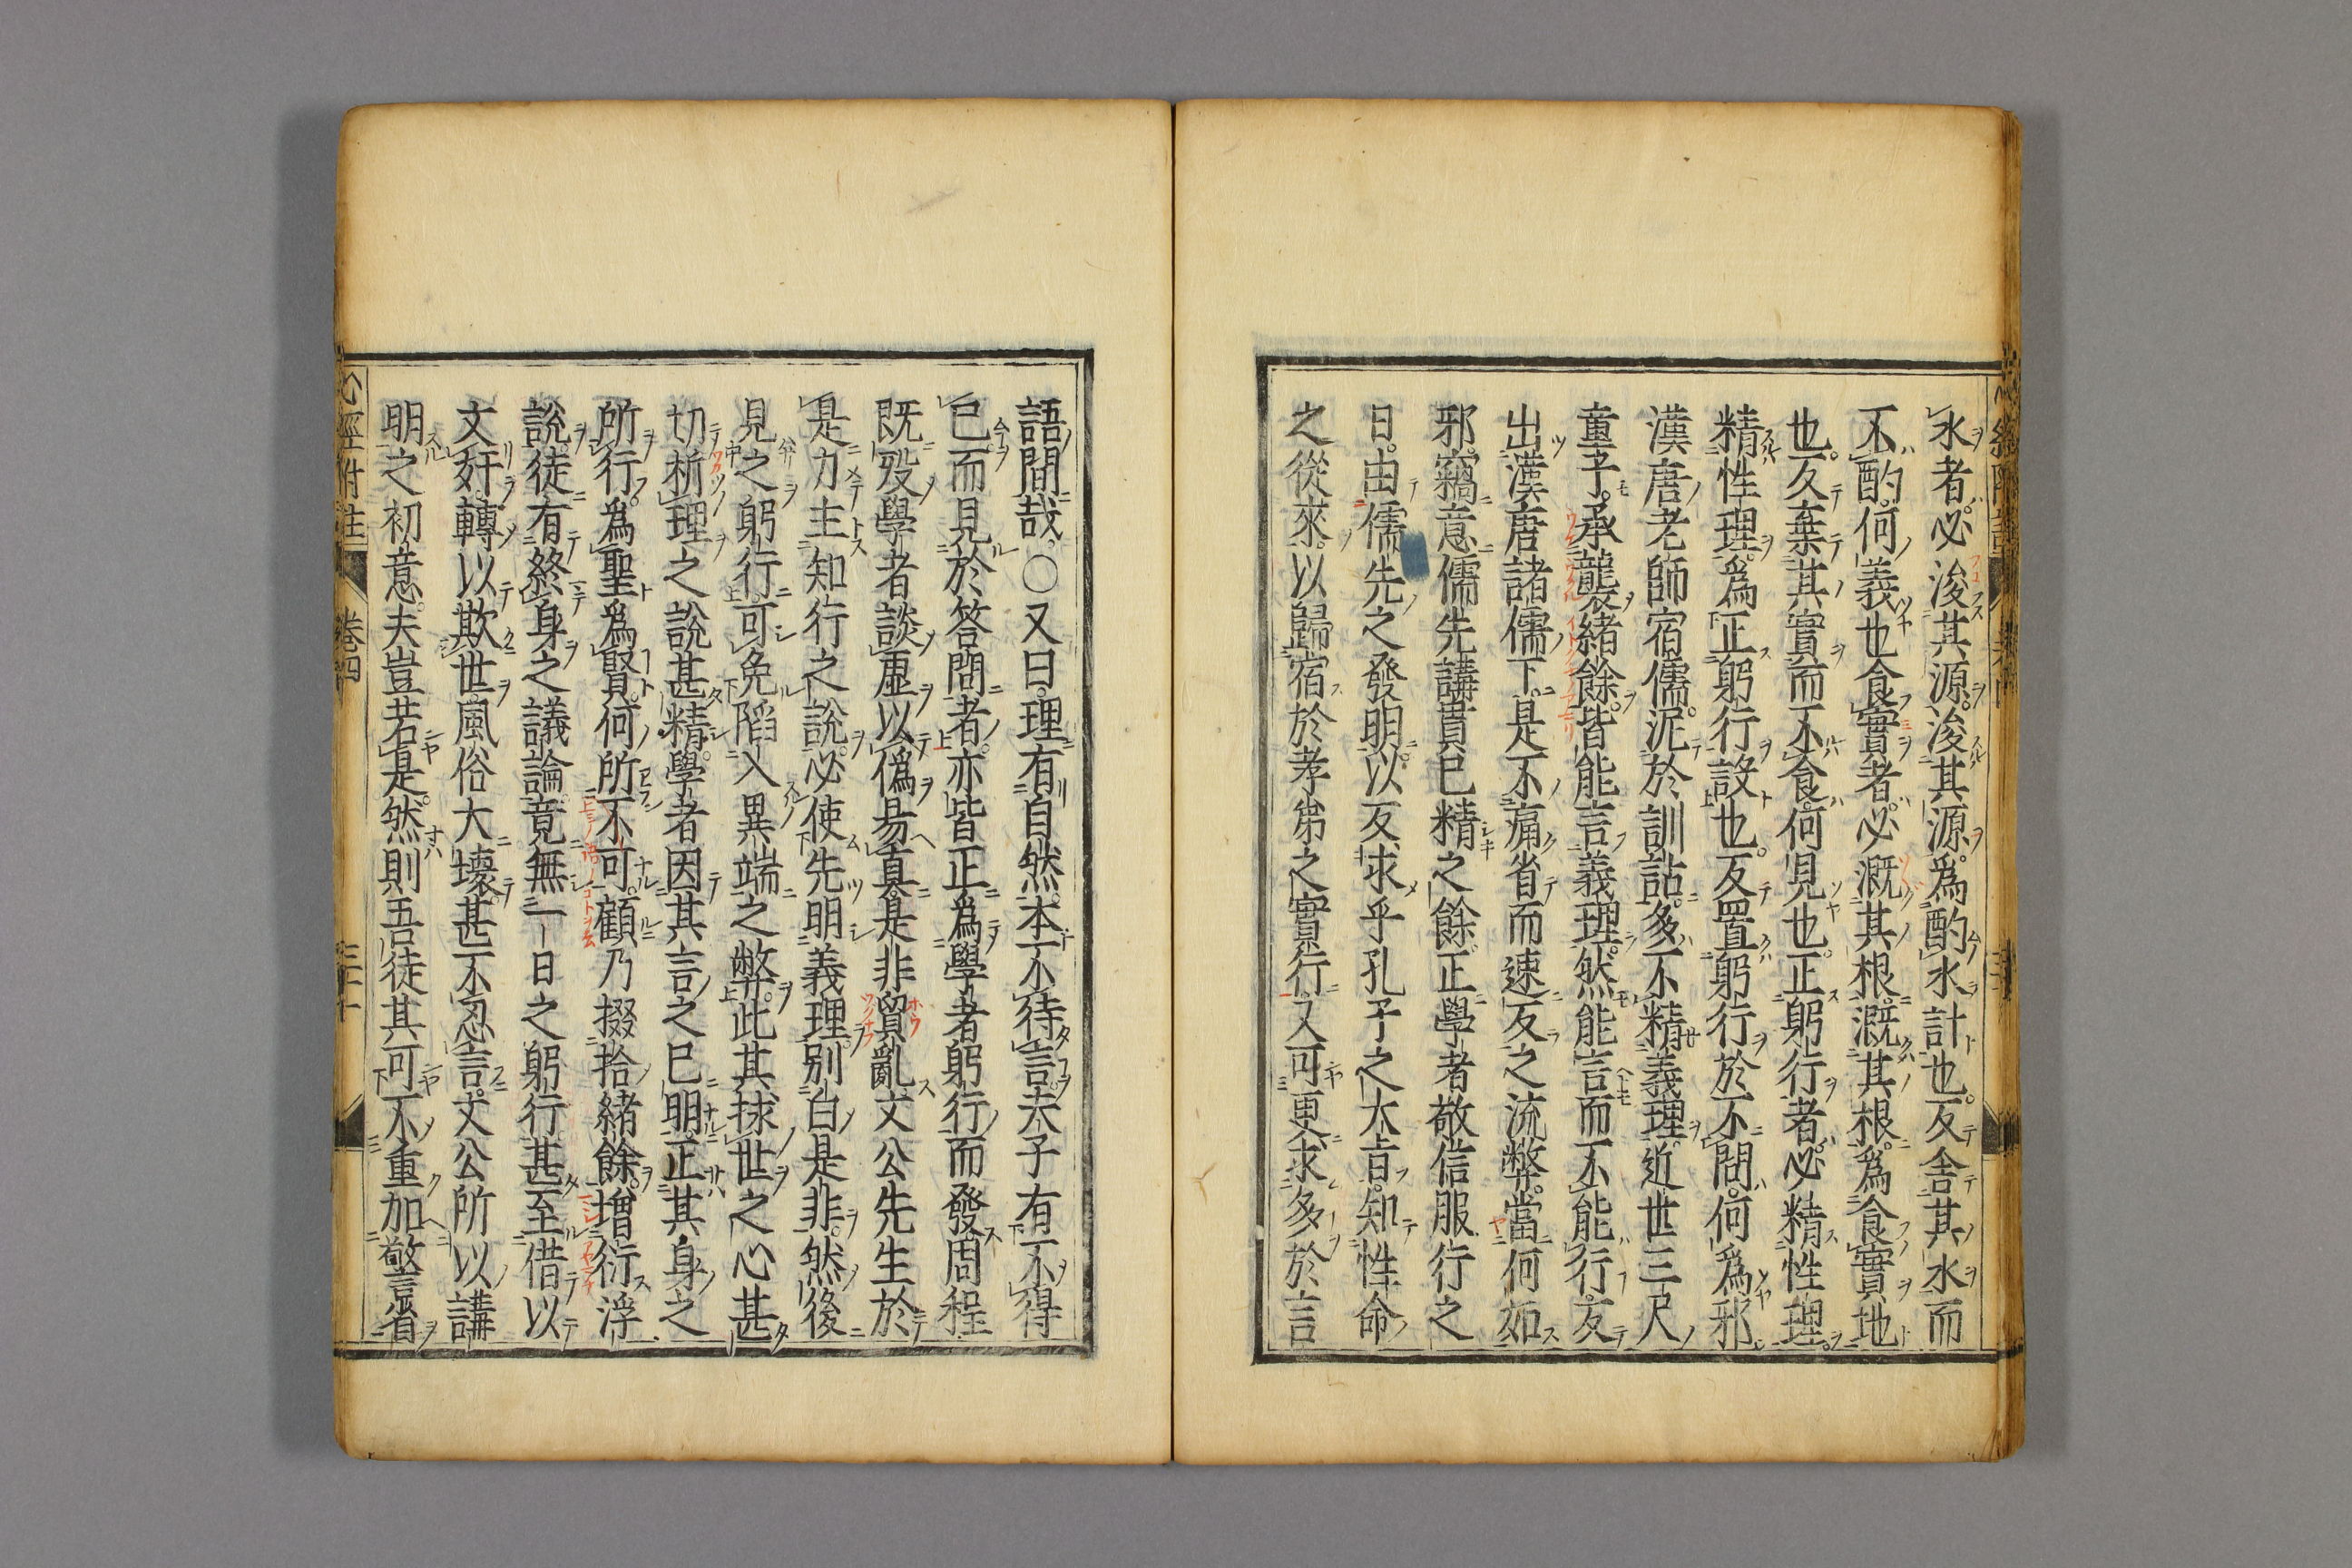 水者必浚其源浚其源為酌水計也反舍其水而
不酌何義也食實者必漑其根漑其根為食實地
也反棄其實而不食何見也正躬行者必精性理
精性理為正躬行設也反置躬行於不問何為邪
漢唐老師宿儒泥於訓詁多不精義理近世三尺
童子承襲緒餘皆能言義理然能言而不能行反
出漢唐諸儒下是不痛省而速反之流弊當何如
邪竊意儒先講貫已精之餘正學者敬信服行之
日由儒先之發明以反求乎孔子之大旨知性命
之從來以歸宿於孝弟之實行又可更求多於言
語間哉○又曰理有自然本不待言夫子有不得
已而見於答問者亦皆正為學者躬行而發周程
既歿學者談虛以偽易真是非貿亂文公先生於
是力主知行之說必使先明義理別白是非然後
見之躬行可免陷入異端之弊此其捄世之心甚
切析理之說甚精學者因其言之已明正其身之
所行為聖為賢何所不可顧乃掇拾緒餘增衍浮
說徒有終身之議論竟無一日之躬行甚至借以
文奸轉以欺世風俗大壞甚不忍言文公所以講
明之初意夫豈若是然則吾徒其可不重加警省
心經附註 卷四